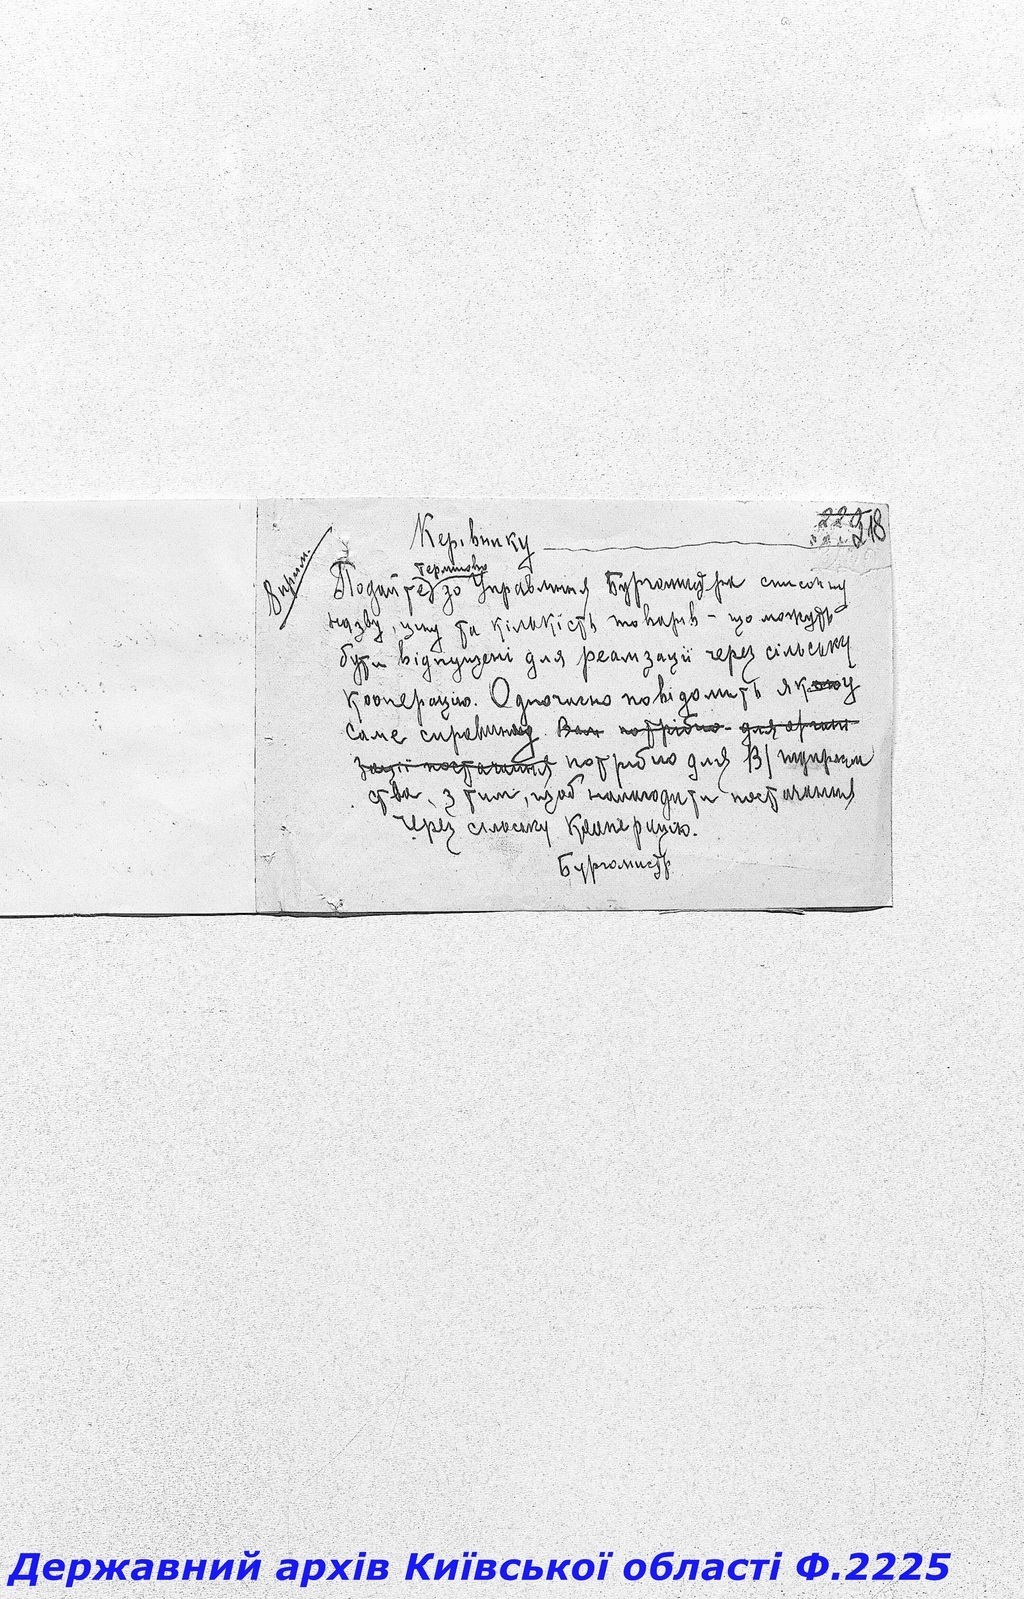 218
8 прим.
Керівнику
терміново
Подайте до Управління Бургомистра списки
назву, ціну та кількість товарів - що можуть
бути відпущені для реалізації через сільську
кооперацію. Одночасно повідомить яку
саме сировину Вам потрібно для органі
зації постачання потрібно для В/ підприєм
ства, з тим, щоб налагодити постачання
через сільську кооперацію.
Бургомистр
Державний архів Київської області Ф.2225